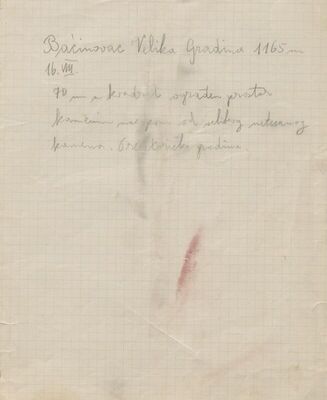 Baćinovac Velika Gradina 1165 m
16. VIII.
70 m u kvadrat ograđen prostor
kamenim nasipom od velikog netesanog
kamena. gradina